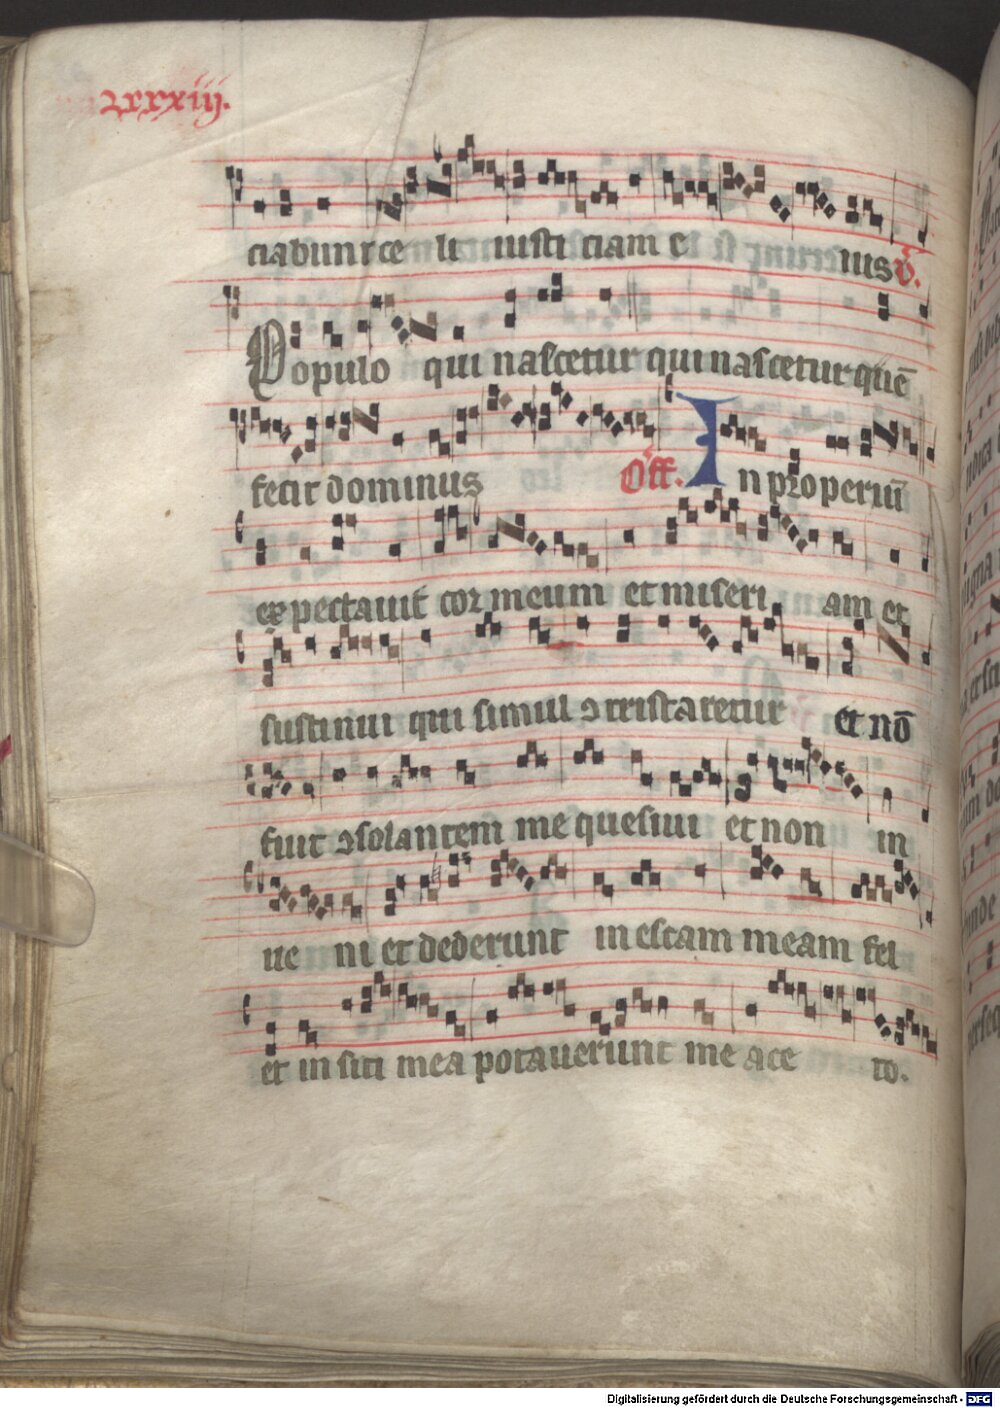 lxxxiij.
ciabunt ce li iusti ciam e ius ℣.
Populo qui nascetur qui nascetur quē
fecit dominus Off. In properiū
expectauit cor meum et miseri am et
sustinui qui simul ꝯtristaretur et nō
fuit ꝯsolantem me quesiui et non in
ue ni et dederunt in escam meam fel
et in siti mea potauerunt me ace to.
Digitalisierung gefördert durch die Deutsche Forschungsgemeinschaft - DFG